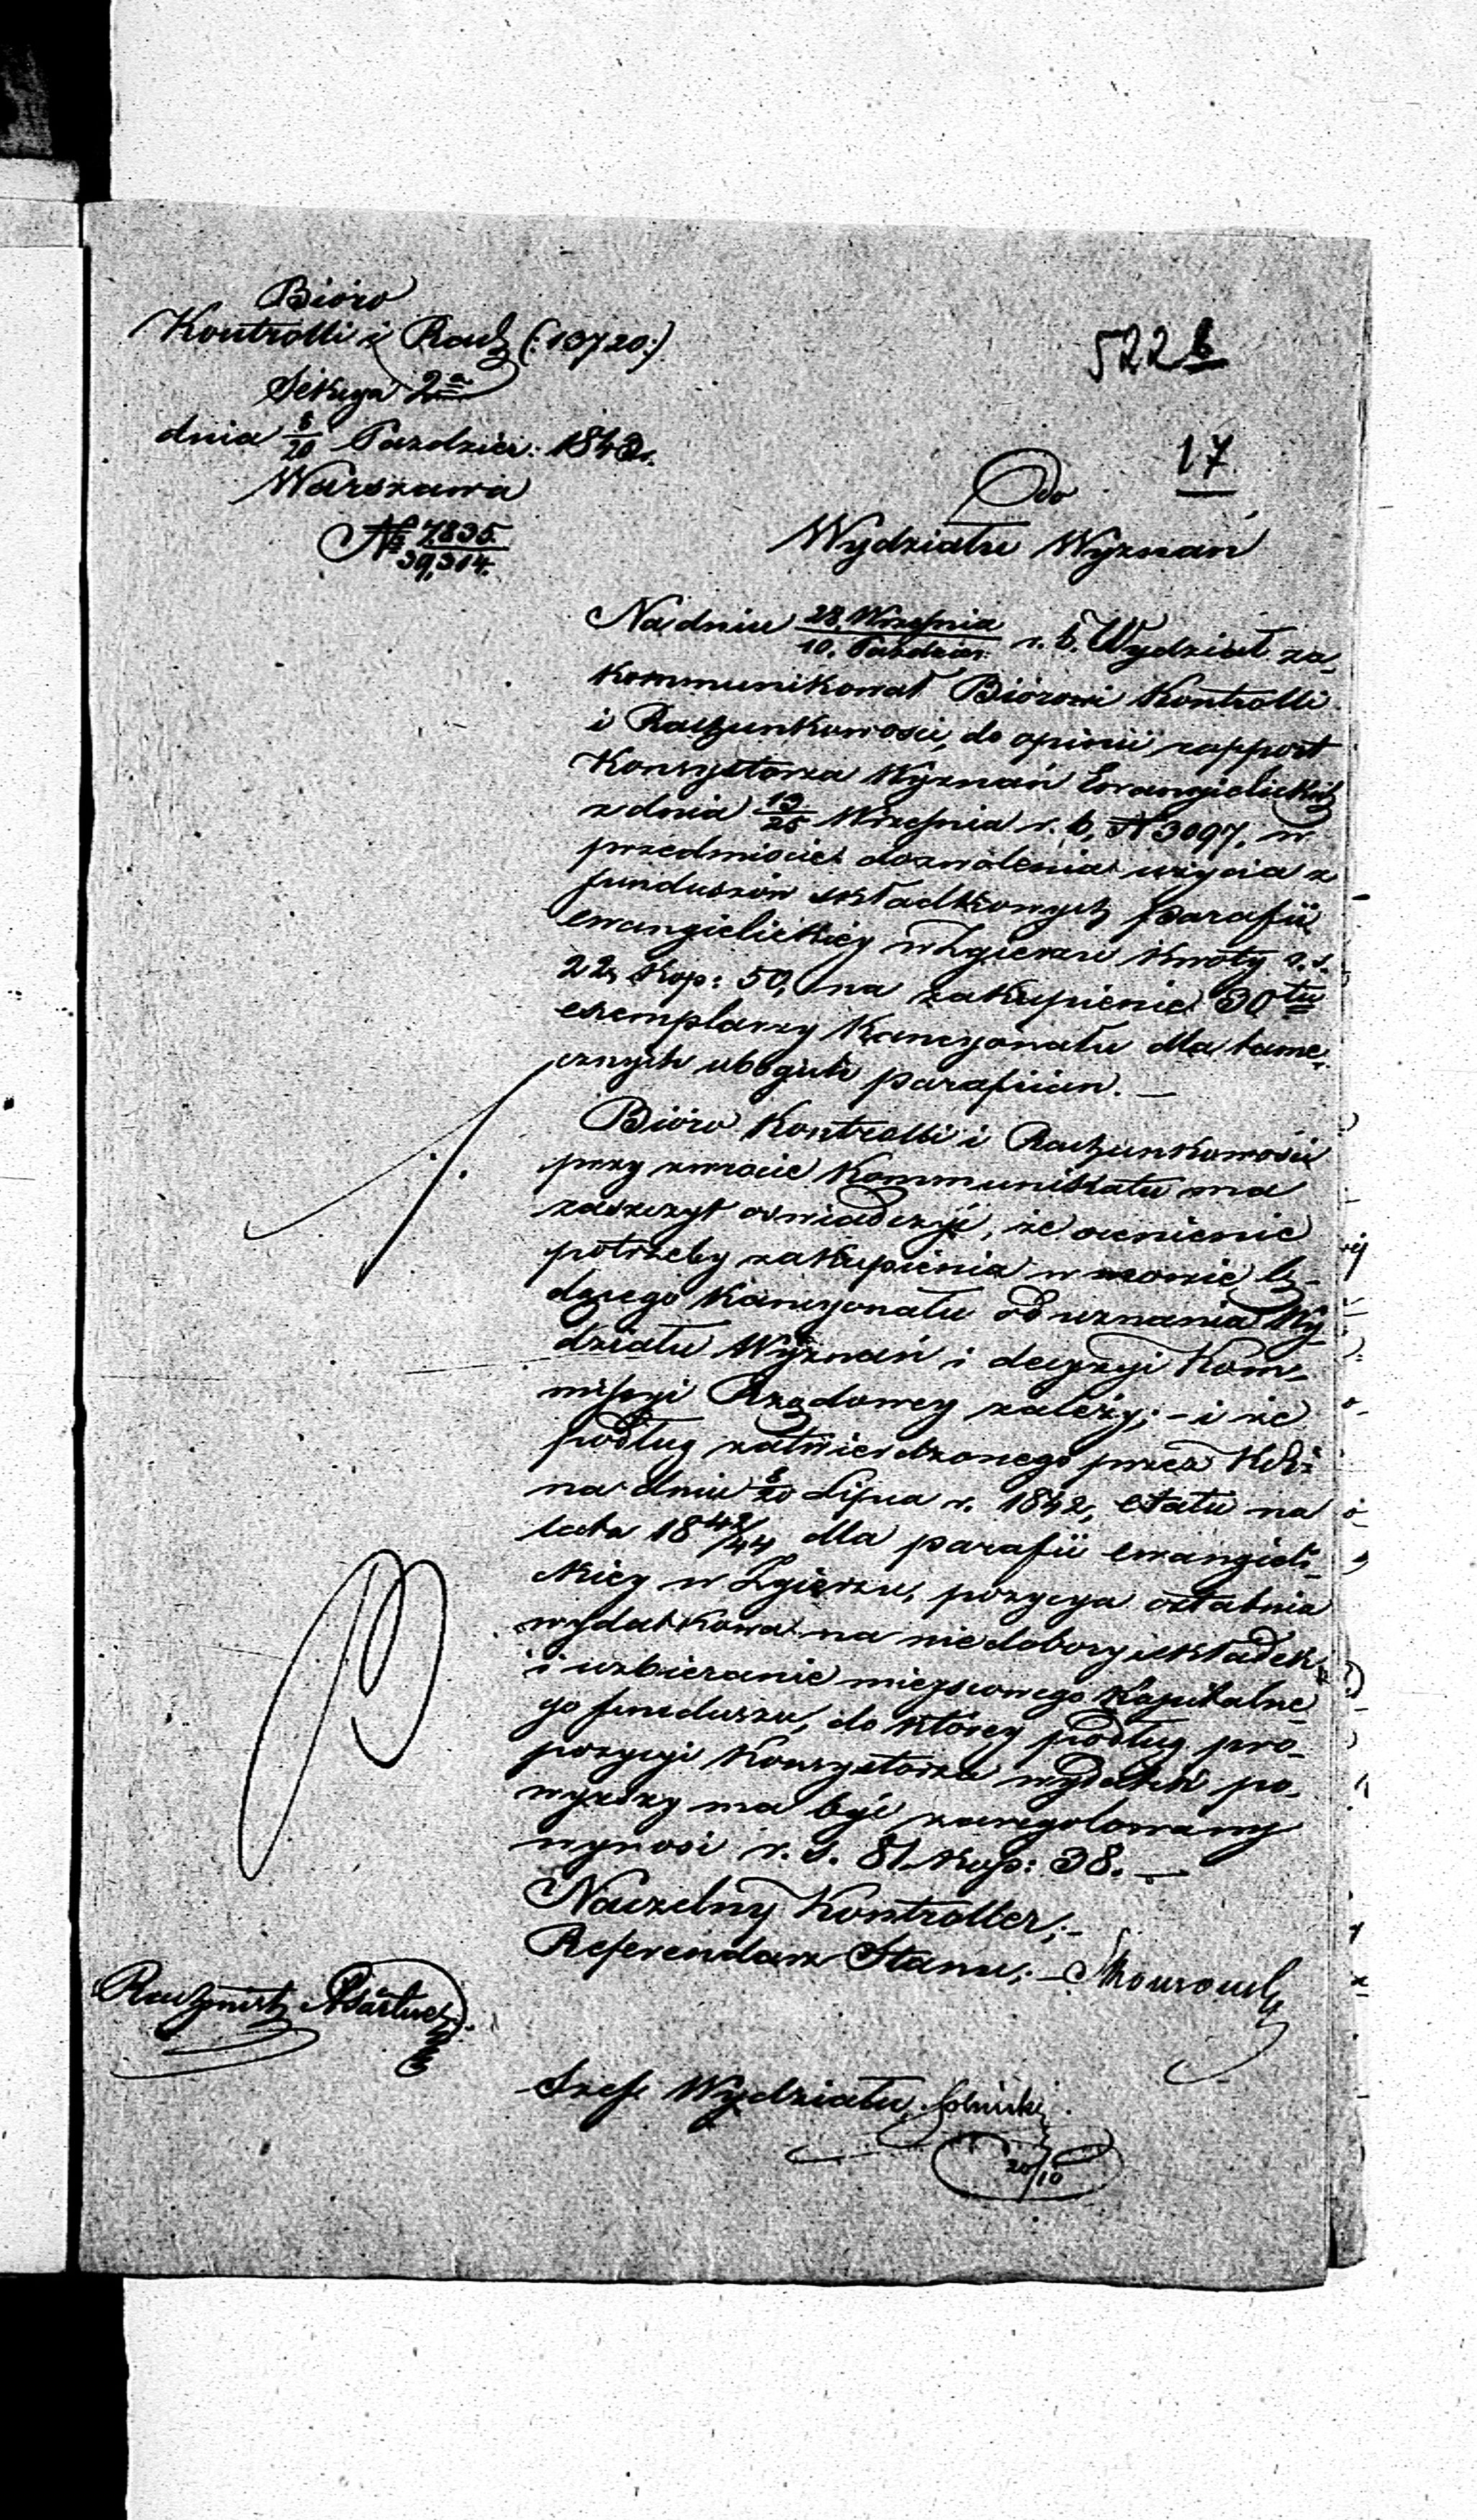 Bióro
Kontrolli i Rach (:13720:)
Sekcya 2a
dnia 8/20 Październ: 1843r.
Warszawa
N 7835/39,314.
522 b
17
Do
Wydziału Wyznań
Na dniu 28. Września/10. Paździer: r. b. Wydział za-
kommunikował Biórowi Kontrolli
i Rachunkowości, do opinii rapport
Konsystorza Wyznań Ewangielickich
z dnia 13/25 Września r. b, N 3097, w
przedmiocie dozwolenia użycia z
funduszów składkowych Parafii
ewangielickiéy w Zgierzu kwoty r. s.
22, kop: 50, na zakupienie 30tu
exemplarzy Kancyonału dla tame-
cznych ubogich parafian. —
Bióro Kontrolli i Rachunkowości
przy zwrocie Kommunikatu ma
zaszczyt oświadczyć, że ocenienie
potrzeby zakupienia w mowie bę-
dącego Kancyonału od uznania Wy
działu Wyznań i decyzyi Kom-
missyi Rządowey należy; – i że
podług zatwierdzonego przez
na dniu 8/20 Lipca r. 1842, etatu na
lata 1842/44 dla parafii ewangieli-
ckiéy w Zgierzu, pozycya ostatnia
wydatkowa na niedobory składek
i uzbieranie mieyscowego Kapitalne-
go funduszu, do któréy podług pro-
pozycyi Konsystorza wydatek po-
wyższy ma być zaregulowany
wynosi r. s. 81. kop: 38. —
Naczelny Kontroller;-
Referendarz Stanu; –
Rachmistrz
Szef Wydziału
20/10